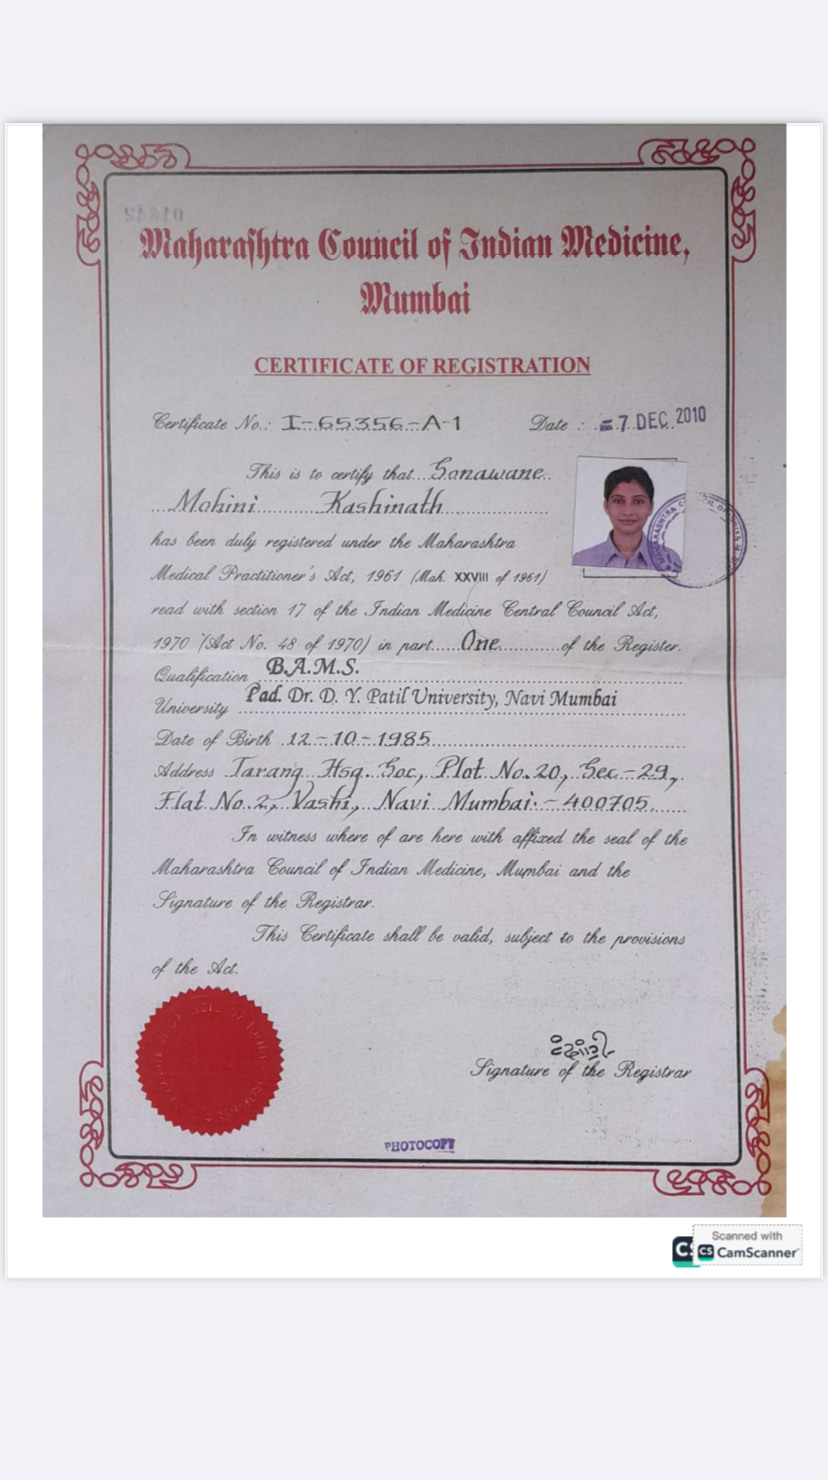 01642
Maharashtra Council of Indian Medicine,
Mumbai
CERTIFICATE OF REGISTRATION
Certificate No.: I-65356-A-1 Date : = 7 DEC. 2010
This is to certify that Sonawane
Mohini Kashinath
has been duly registered under the Maharashtra
Medical Practitioner's Act, 1961 (Mah. XXVIII of 1961)
read with section 17 of the Indian Medicine Central Council Act,
1970 (Act No. 48 of 1970) in part One of the Register.
Qualification B.A.M.S.
University Pad. Dr. D. Y. Patil University, Navi Mumbai
Date of Birth 12-10-1985
Address Tarang Hsg. Soc, Plot No. 20, Sec-29,
Flat No. 2, Vashi, Navi Mumbai. - 400705.
In witness where of are here with affixed the seal of the
Maharashtra Council of Indian Medicine, Mumbai and the
Signature of the Registrar.
This Certificate shall be valid, subject to the provisions
of the Act.
Signature of the Registrar
PHOTOCOPY
Scanned with
CS CamScanner